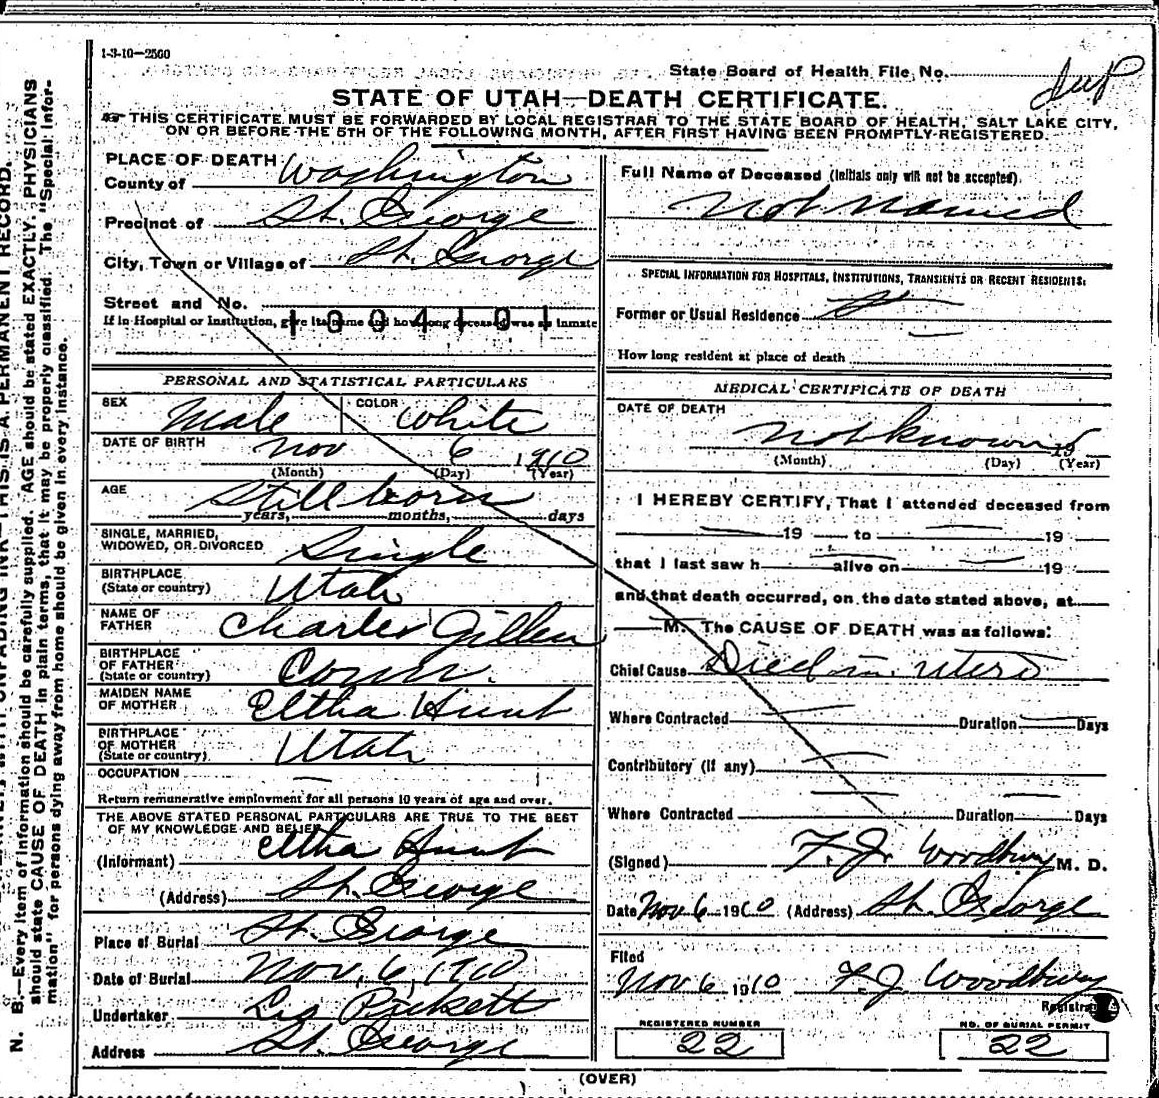 1-3-10—2500
State Board of Health File No. Dup
STATE OF UTAH—DEATH CERTIFICATE.
THIS CERTIFICATE MUST BE FORWARDED BY LOCAL REGISTRAR TO THE STATE BOARD OF HEALTH, SALT LAKE CITY,
ON OR BEFORE THE 5TH OF THE FOLLOWING MONTH, AFTER FIRST HAVING BEEN PROMPTLY REGISTERED.
PLACE OF DEATH
County of Washington
Precinct of St. George
City, Town or Village of St. George
Street and No.
If in Hospital or Institution, give its name and how long deceased was an inmate
1004101
PERSONAL AND STATISTICAL PARTICULARS
SEX Male COLOR White
DATE OF BIRTH Nov 6 1910
(Month) (Day) (Year)
AGE Still born
years, months, days
SINGLE, MARRIED,
WIDOWED, OR DIVORCED Single
BIRTHPLACE
(State or country) Utah
NAME OF
FATHER Charles Gillen
BIRTHPLACE
OF FATHER
(State or country) Conn.
MAIDEN NAME
OF MOTHER Eltha Hunt
BIRTHPLACE
OF MOTHER
(State or country) Utah
OCCUPATION —
Return remunerative employment for all persons 10 years of age and over.
THE ABOVE STATED PERSONAL PARTICULARS ARE TRUE TO THE BEST
OF MY KNOWLEDGE AND BELIEF
(Informant) Eltha Hunt
(Address) St. George
Place of Burial St. George
Date of Burial Nov. 6, 1910
Undertaker Pickett
Address St. George
Full Name of Deceased (Initials only will not be accepted).
Not Named
SPECIAL INFORMATION FOR HOSPITALS, INSTITUTIONS, TRANSIENTS OR RECENT RESIDENTS:
Former or Usual Residence
How long resident at place of death
MEDICAL CERTIFICATE OF DEATH
DATE OF DEATH
Not known 19
(Month) (Day) (Year)
I HEREBY CERTIFY, That I attended deceased from
— 19 — to — 19 —
that I last saw h — alive on — 19 —
and that death occurred, on the date stated above, at
— M. The CAUSE OF DEATH was as follows:
Chief Cause Died in utero
Where Contracted — Duration — Days
Contributory (if any) —
Where Contracted — Duration — Days
(Signed) F. J. Woodbury M. D.
Date Nov 6 1910 (Address) St. George
Filed
Nov 6 1910 F. J. Woodbury
Registrar
REGISTERED NUMBER
22
NO. OF BURIAL PERMIT
22
(OVER)
THIS IS A PERMANENT RECORD.
N. B.—Every item of information should be carefully supplied. AGE should be stated EXACTLY. PHYSICIANS
should state CAUSE OF DEATH in plain terms, that it may be properly classified. The "Special Infor-
mation" for persons dying away from home should be given in every instance.